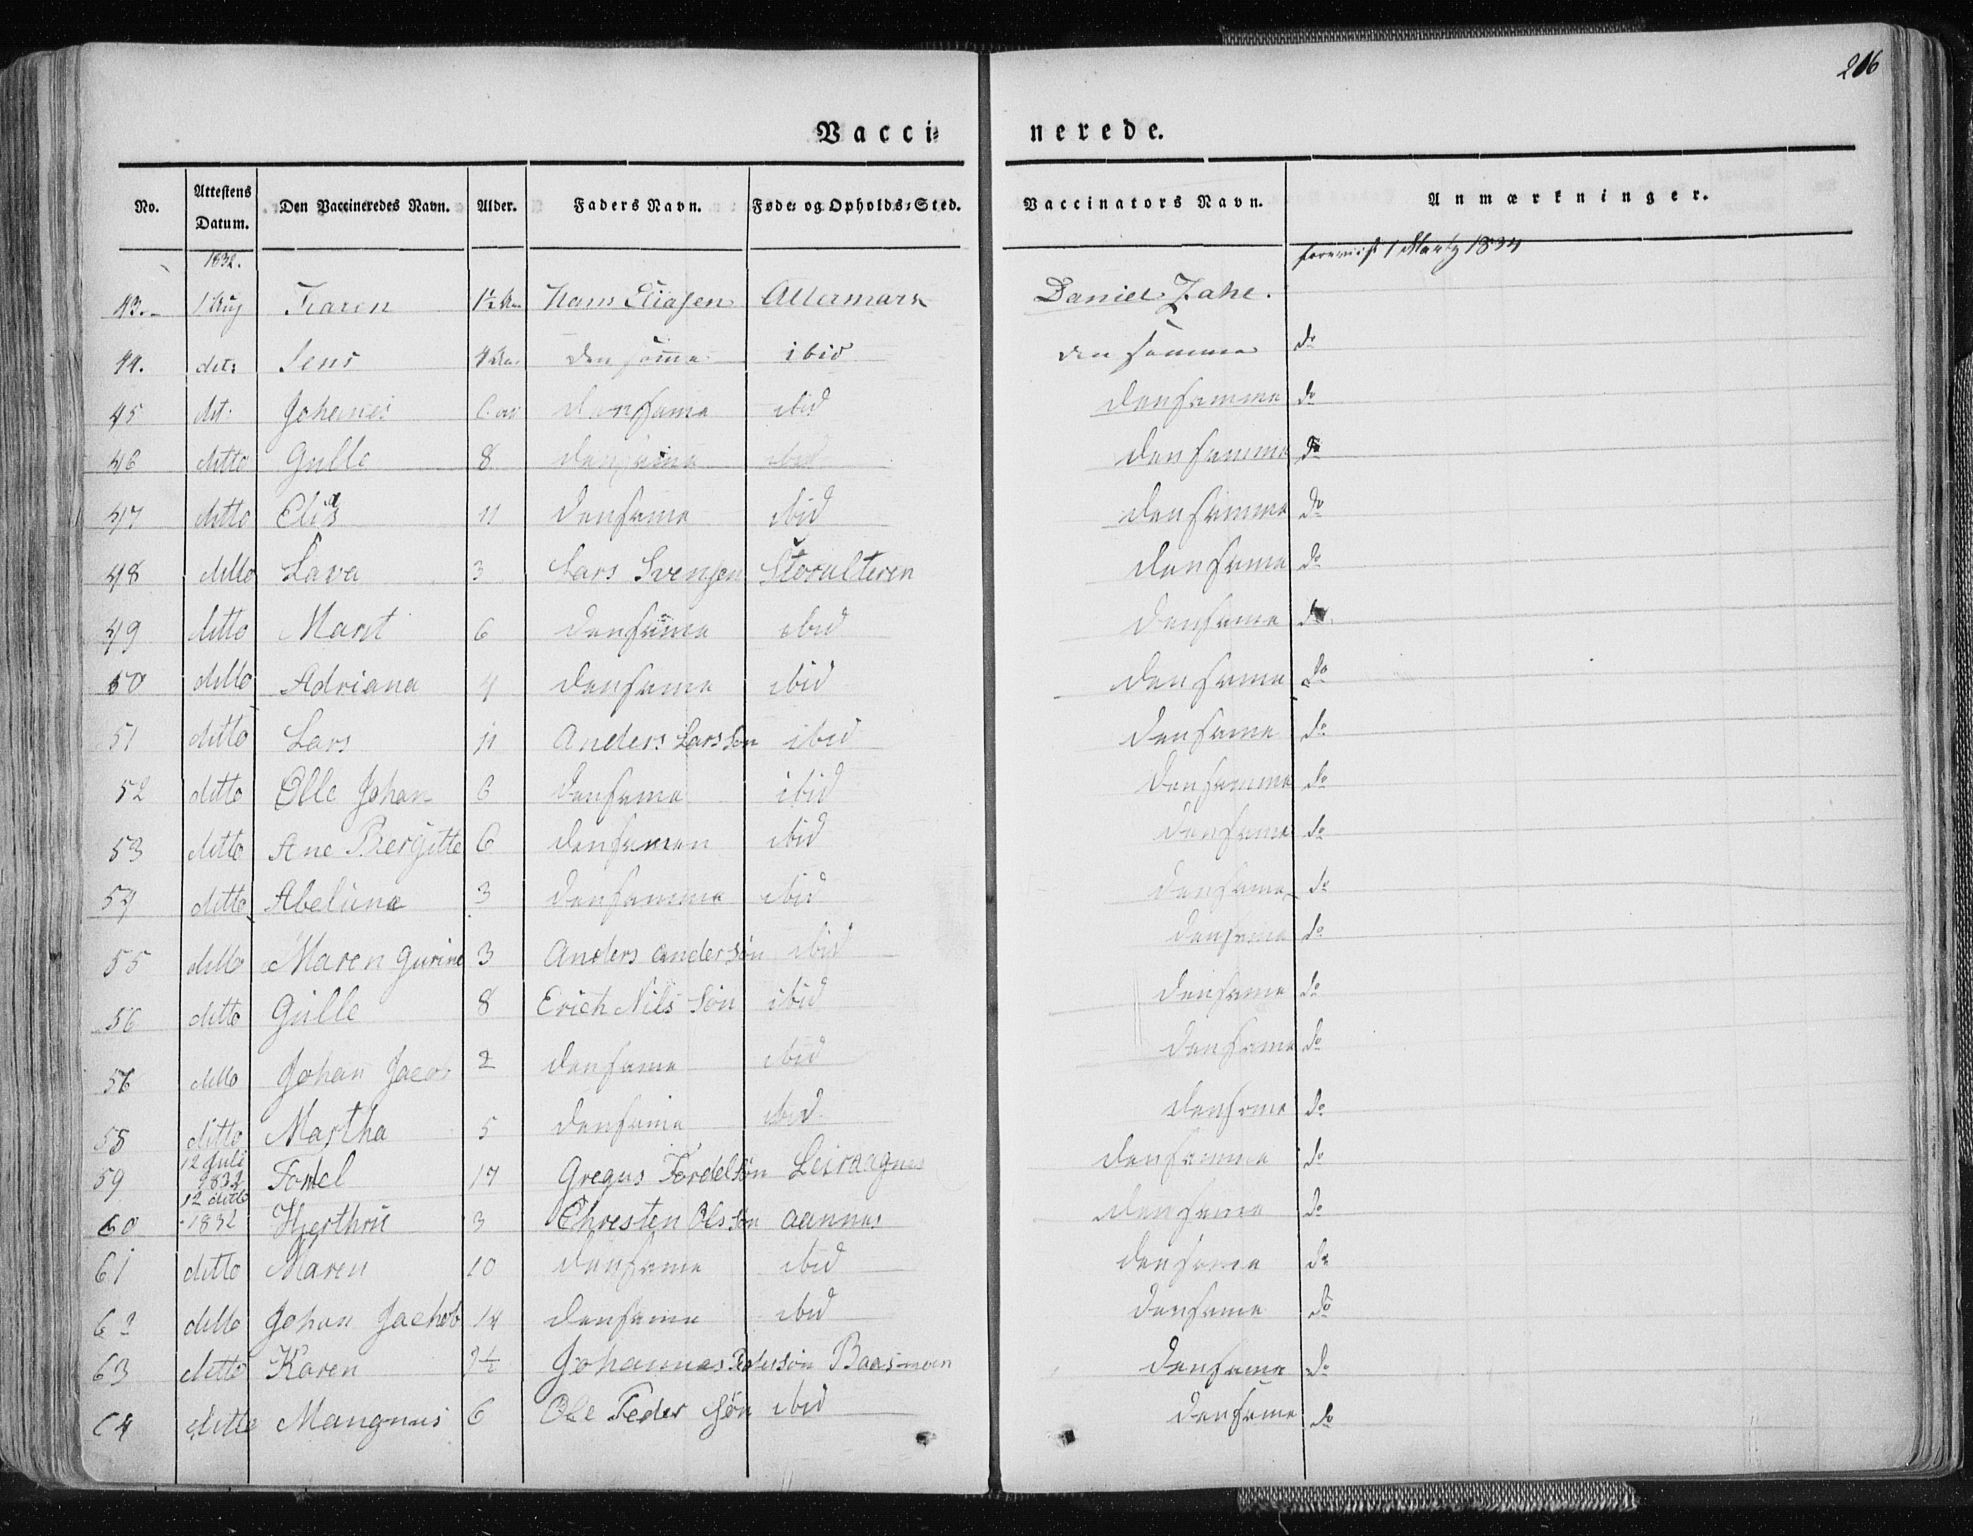 206
Vacci= nerede.
No. Attestens Datum. Den Vaccineredes Navn. Alder. Faders Navn. Føde= og Opholds=Sted. Vaccinators Navn. Anmærkninger.
1832. foreviist 1 Martz 1834
43. 1 Aug Karen 1½ Hans Eliasen Altermark Daniel Zahl.
44. det: Jens 4 den same ibid den samme do
45 det. Johanes 6 densame ibid densamme do
46 ditto Gulle 8 densame ibid densamme do
47 ditto Elias 11 densame ibid densamme do
48 ditto Lava 3 Lars Svensen Storalteren densame do
49 ditto Marit 6 densame ibid densame do
50 ditto Adriana 4 densame ibid densame do
51 ditto Lars 11 Anders Larssøn ibid densame do
52 ditto Olle Johan 8 densame ibid densamme do
53 ditto Ane Bergitte 6 densamen ibid densame do
54 ditto Abeluna 3 densamme ibid densame do
55 ditto Maren Gurine 3 Anders andersøn ibid densame do
56 ditto Gulle 8 Erich Nils søn ibid densame do
56 ditto Johan Jacob 2 densame ibid densame do
58 ditto Martha 5 densame ibid densame do
59 12 Juli 1832 17 Gregus Tordelsøn Leiraagnes densamme do
60 12 ditto 1832 3 Chresten Olssøn aannes densame do
61 ditto Maren 10 densame ibid densame do
62 ditto Johan Jachob 14 densame ibid densame do
63 ditto Karen Johannes Pedersøn Baasmoen densame do
64 ditto Mangnus 6 Ole Peder søn ibid densame do